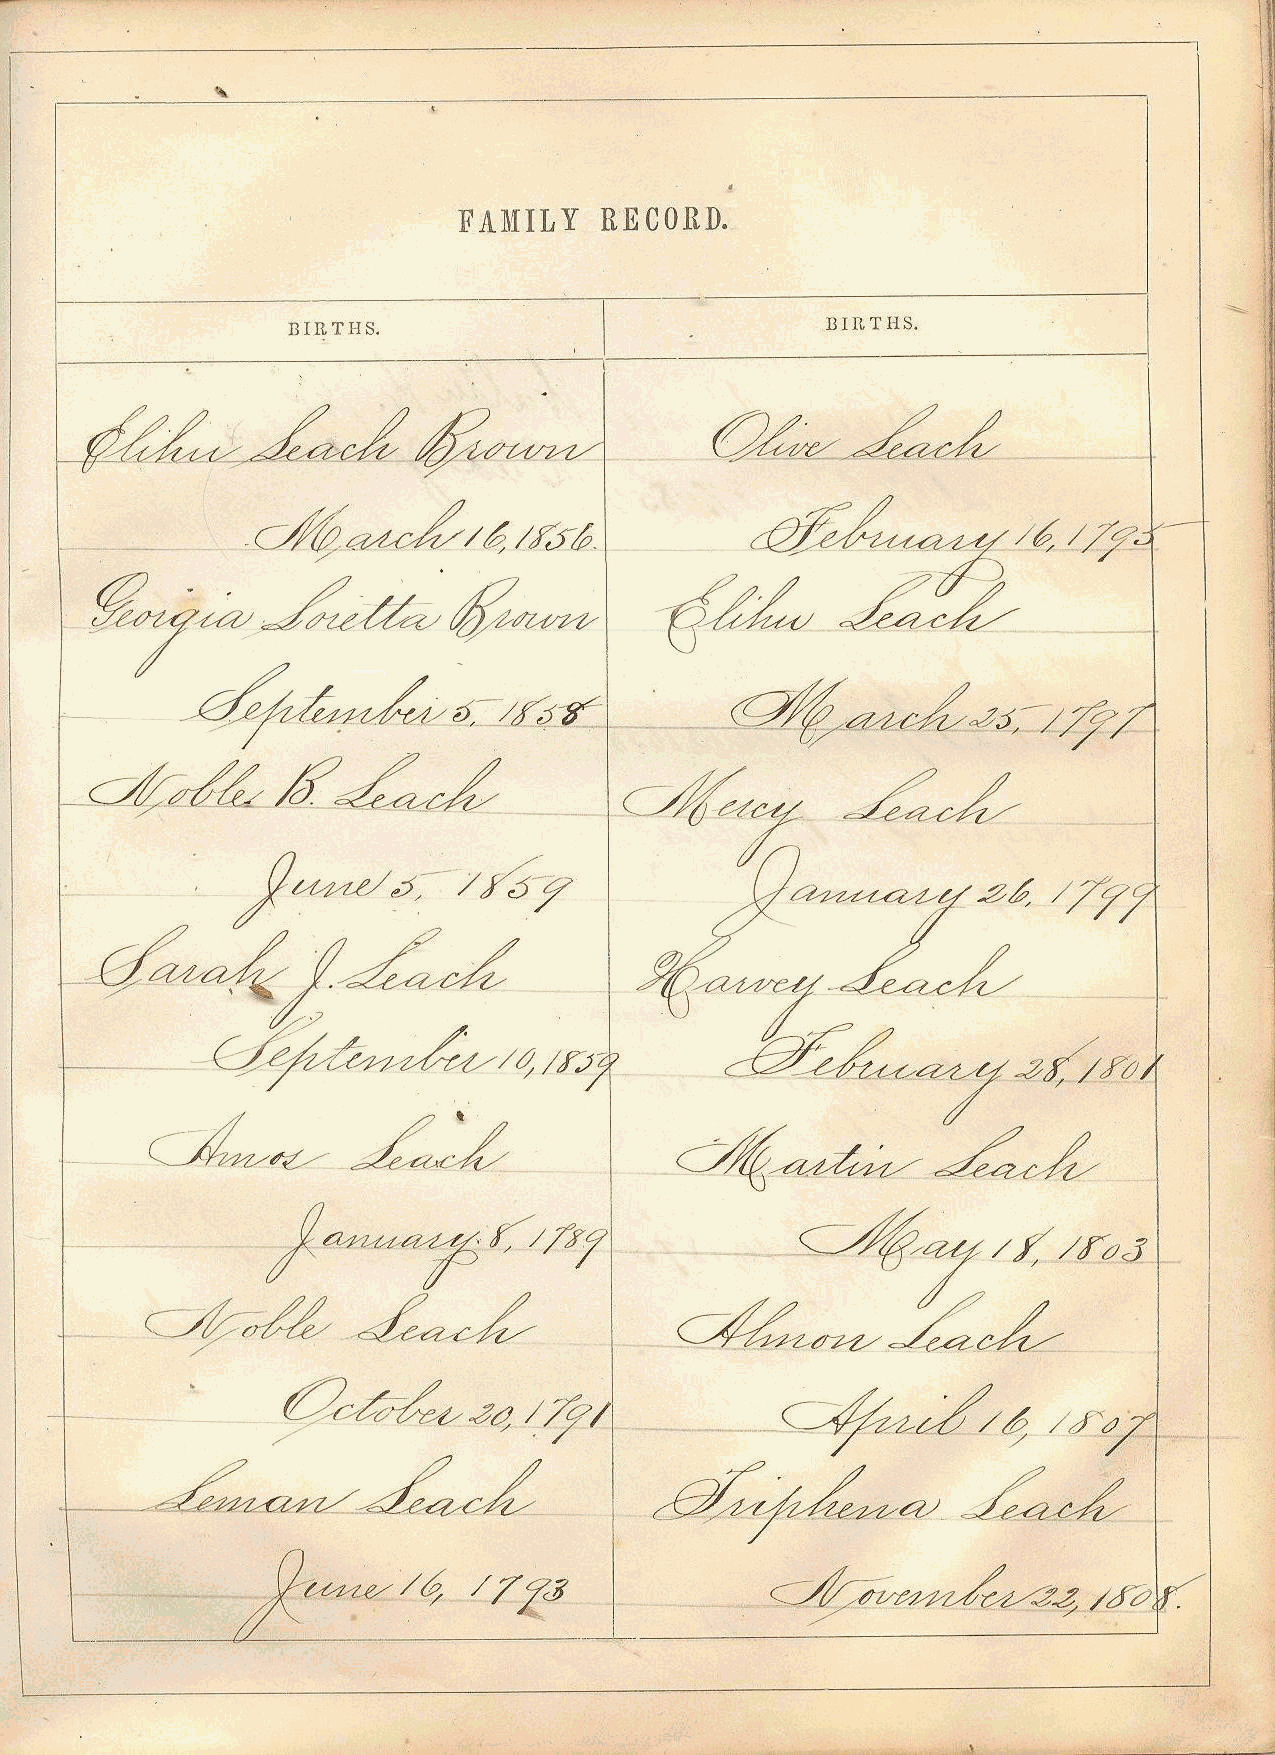 FAMILY RECORD.
BIRTHS.
Elihu Leach Brown
March 16, 1856.
Georgia Loretta Brown
September 5, 1858
Noble B. Leach
June 5, 1859
Sarah J. Leach
September 10, 1859
Amos Leach
January 8, 1789
Noble Leach
October 20, 1791
Leman Leach
June 16, 1793
BIRTHS.
Olive Leach
February 16, 1795
Elihu Leach
March 25, 1797
Mercy Leach
January 26, 1799
Harvey Leach
February 28, 1801
Martin Leach
May 18, 1803
Almon Leach
April 16, 1807
Triphena Leach
November 22, 1808.